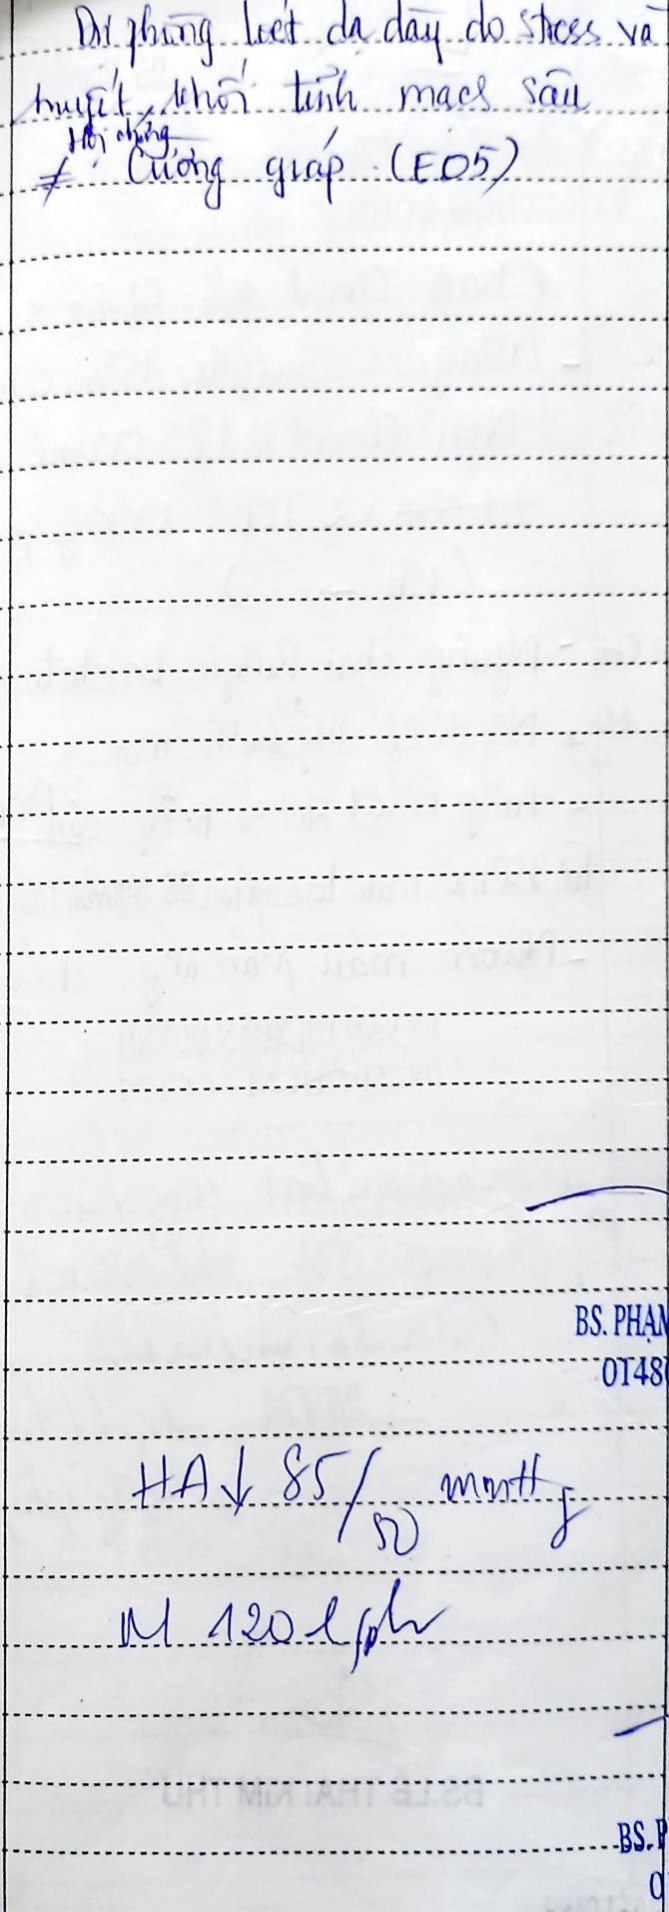 Dự phòng loét dạ dày do stress và
huyết khối tĩnh mạch sâu
Hội chứng
≠ Cường giáp (E05)
BS. PHẠM
0148
HA↓ 85/50 mmHg
M 120 l/ph
BS.LÊ THÁI KIM THƯ
BS. P
0